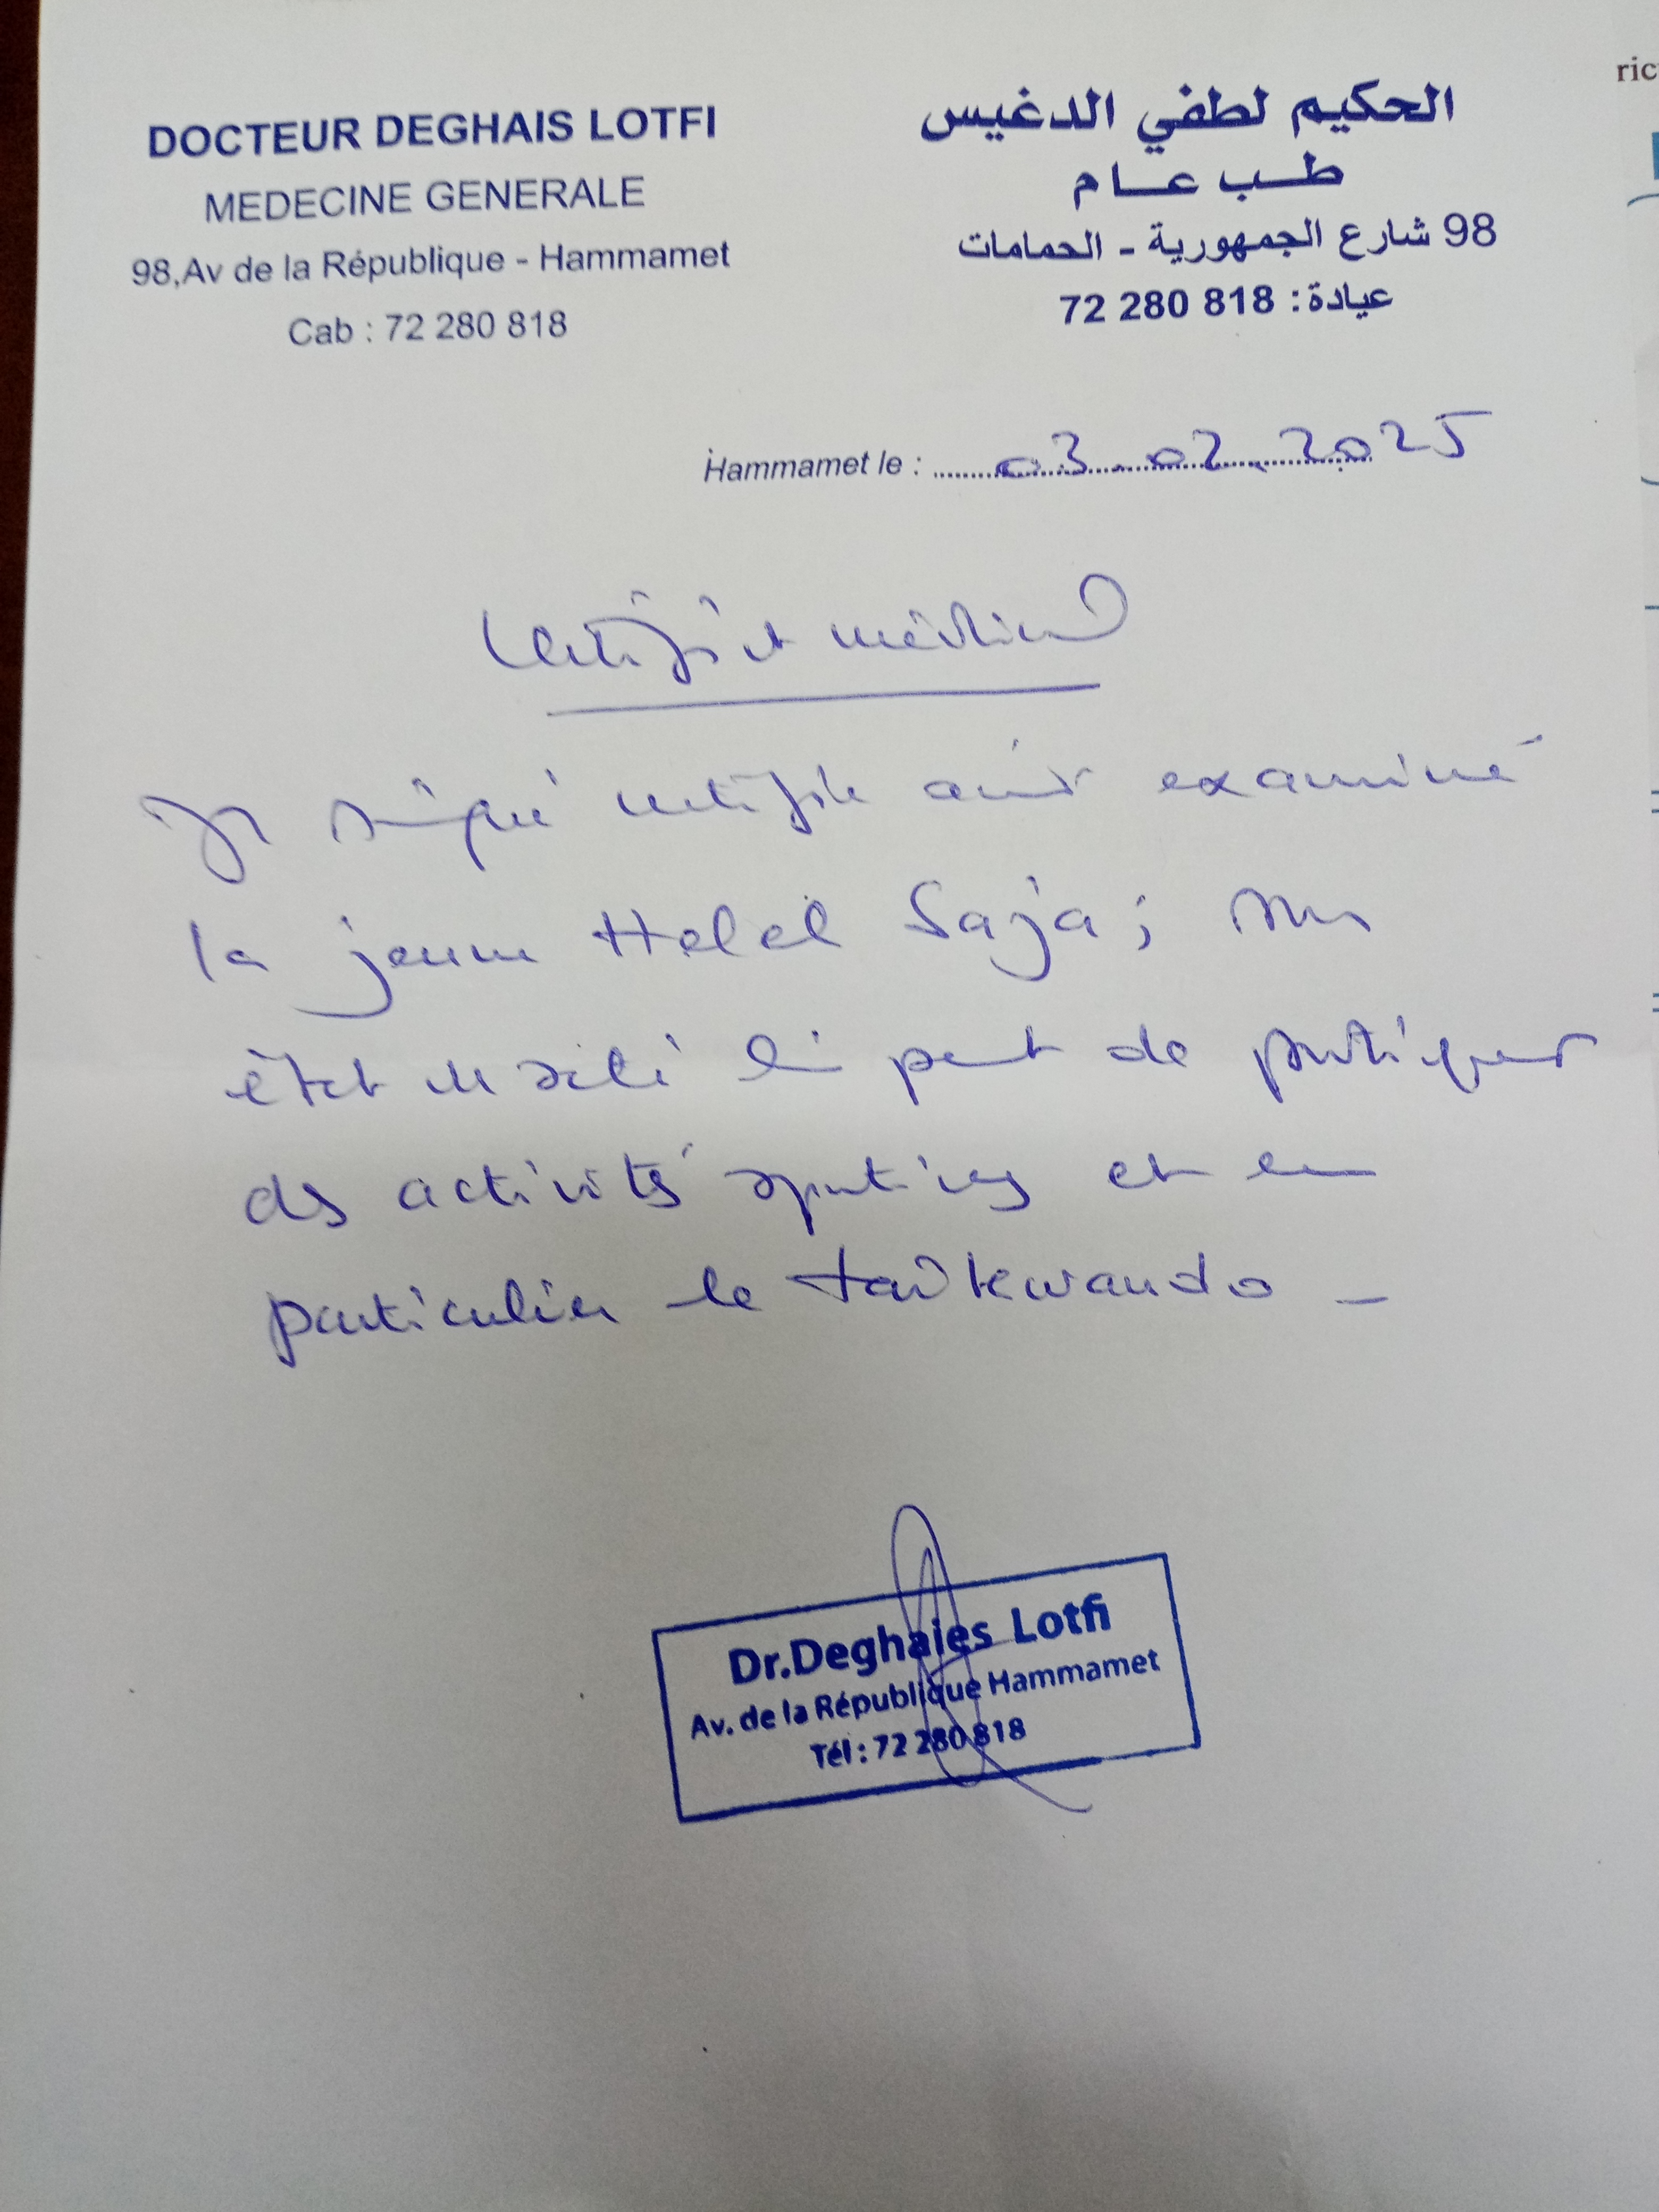 DOCTEUR DEGHAIS LOTFI
MEDECINE GENERALE
98,Av de la République - Hammamet
Cab : 72 280 818
الحكيم لطفي الدغيس
طب عام
98 شارع الجمهورية - الحمامات
عيادة : 818 280 72
ric
Hammamet le : 03.02.2025
Certificat médical
Je signé certifie avoir examiné
la jeune Helel Saja ; son
état de santé lui permet de pratiquer
des activités sportives et en
particulier le taïkwando -
Dr.Deghaies Lotfi
Av. de la République Hammamet
Tél : 72 280 818